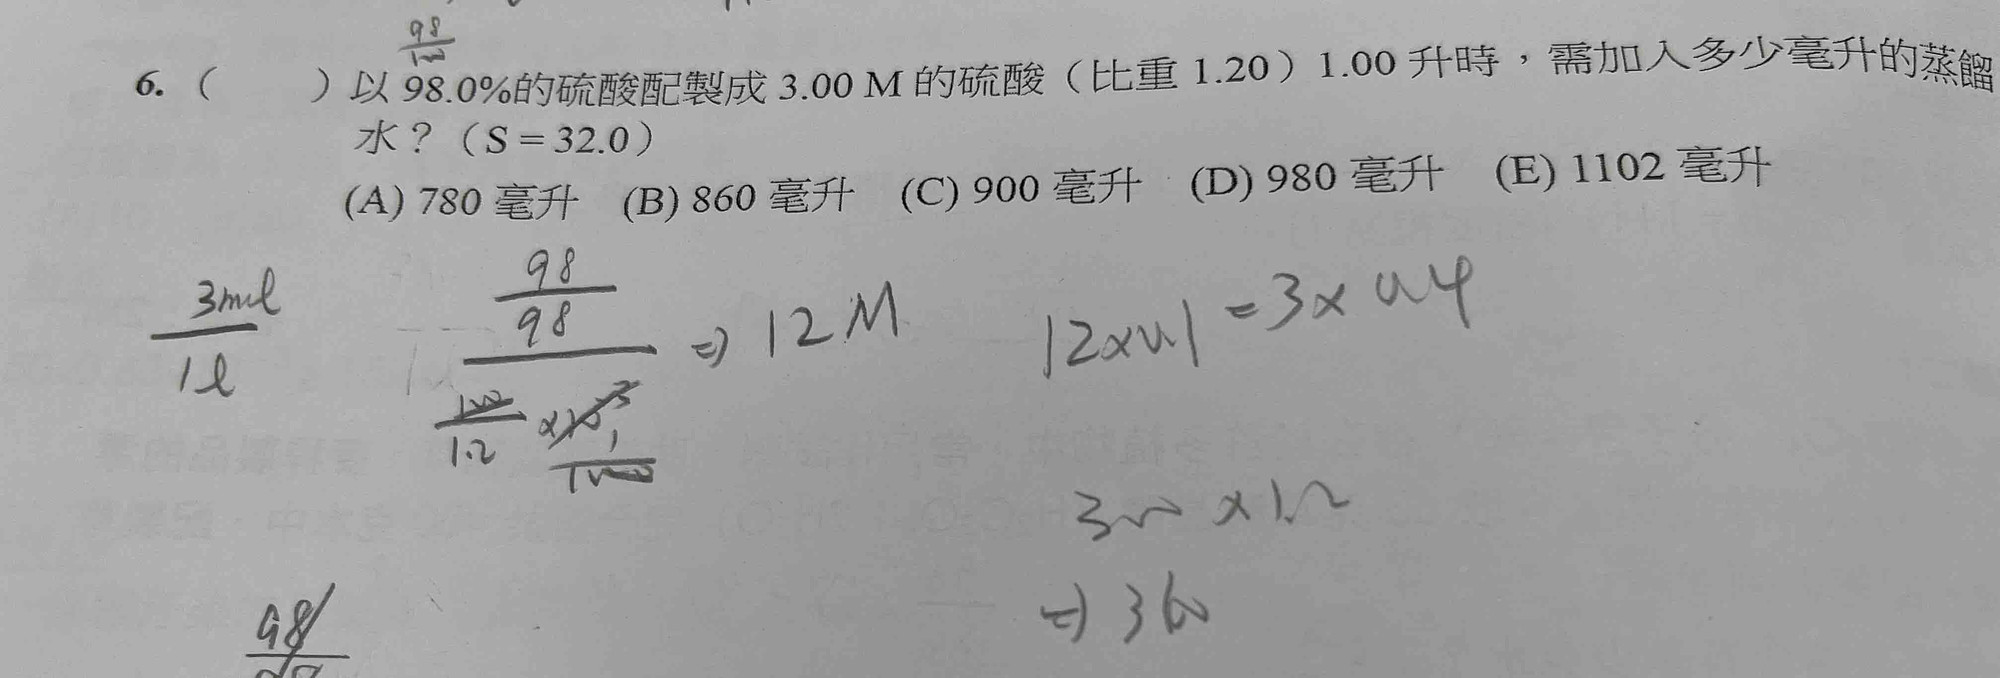 98
100
6. (　　) 以 98.0%的硫酸配製成 3.00 M 的硫酸（比重 1.20）1.00 升時，需加入多少毫升的蒸餾
水？（S = 32.0）
(A) 780 毫升　(B) 860 毫升　(C) 900 毫升　(D) 980 毫升　(E) 1102 毫升
3mol
1l
98
98
⇒ 12 M
100
1.2
12×
=3×
300 ×1.2
⇒ 360
98